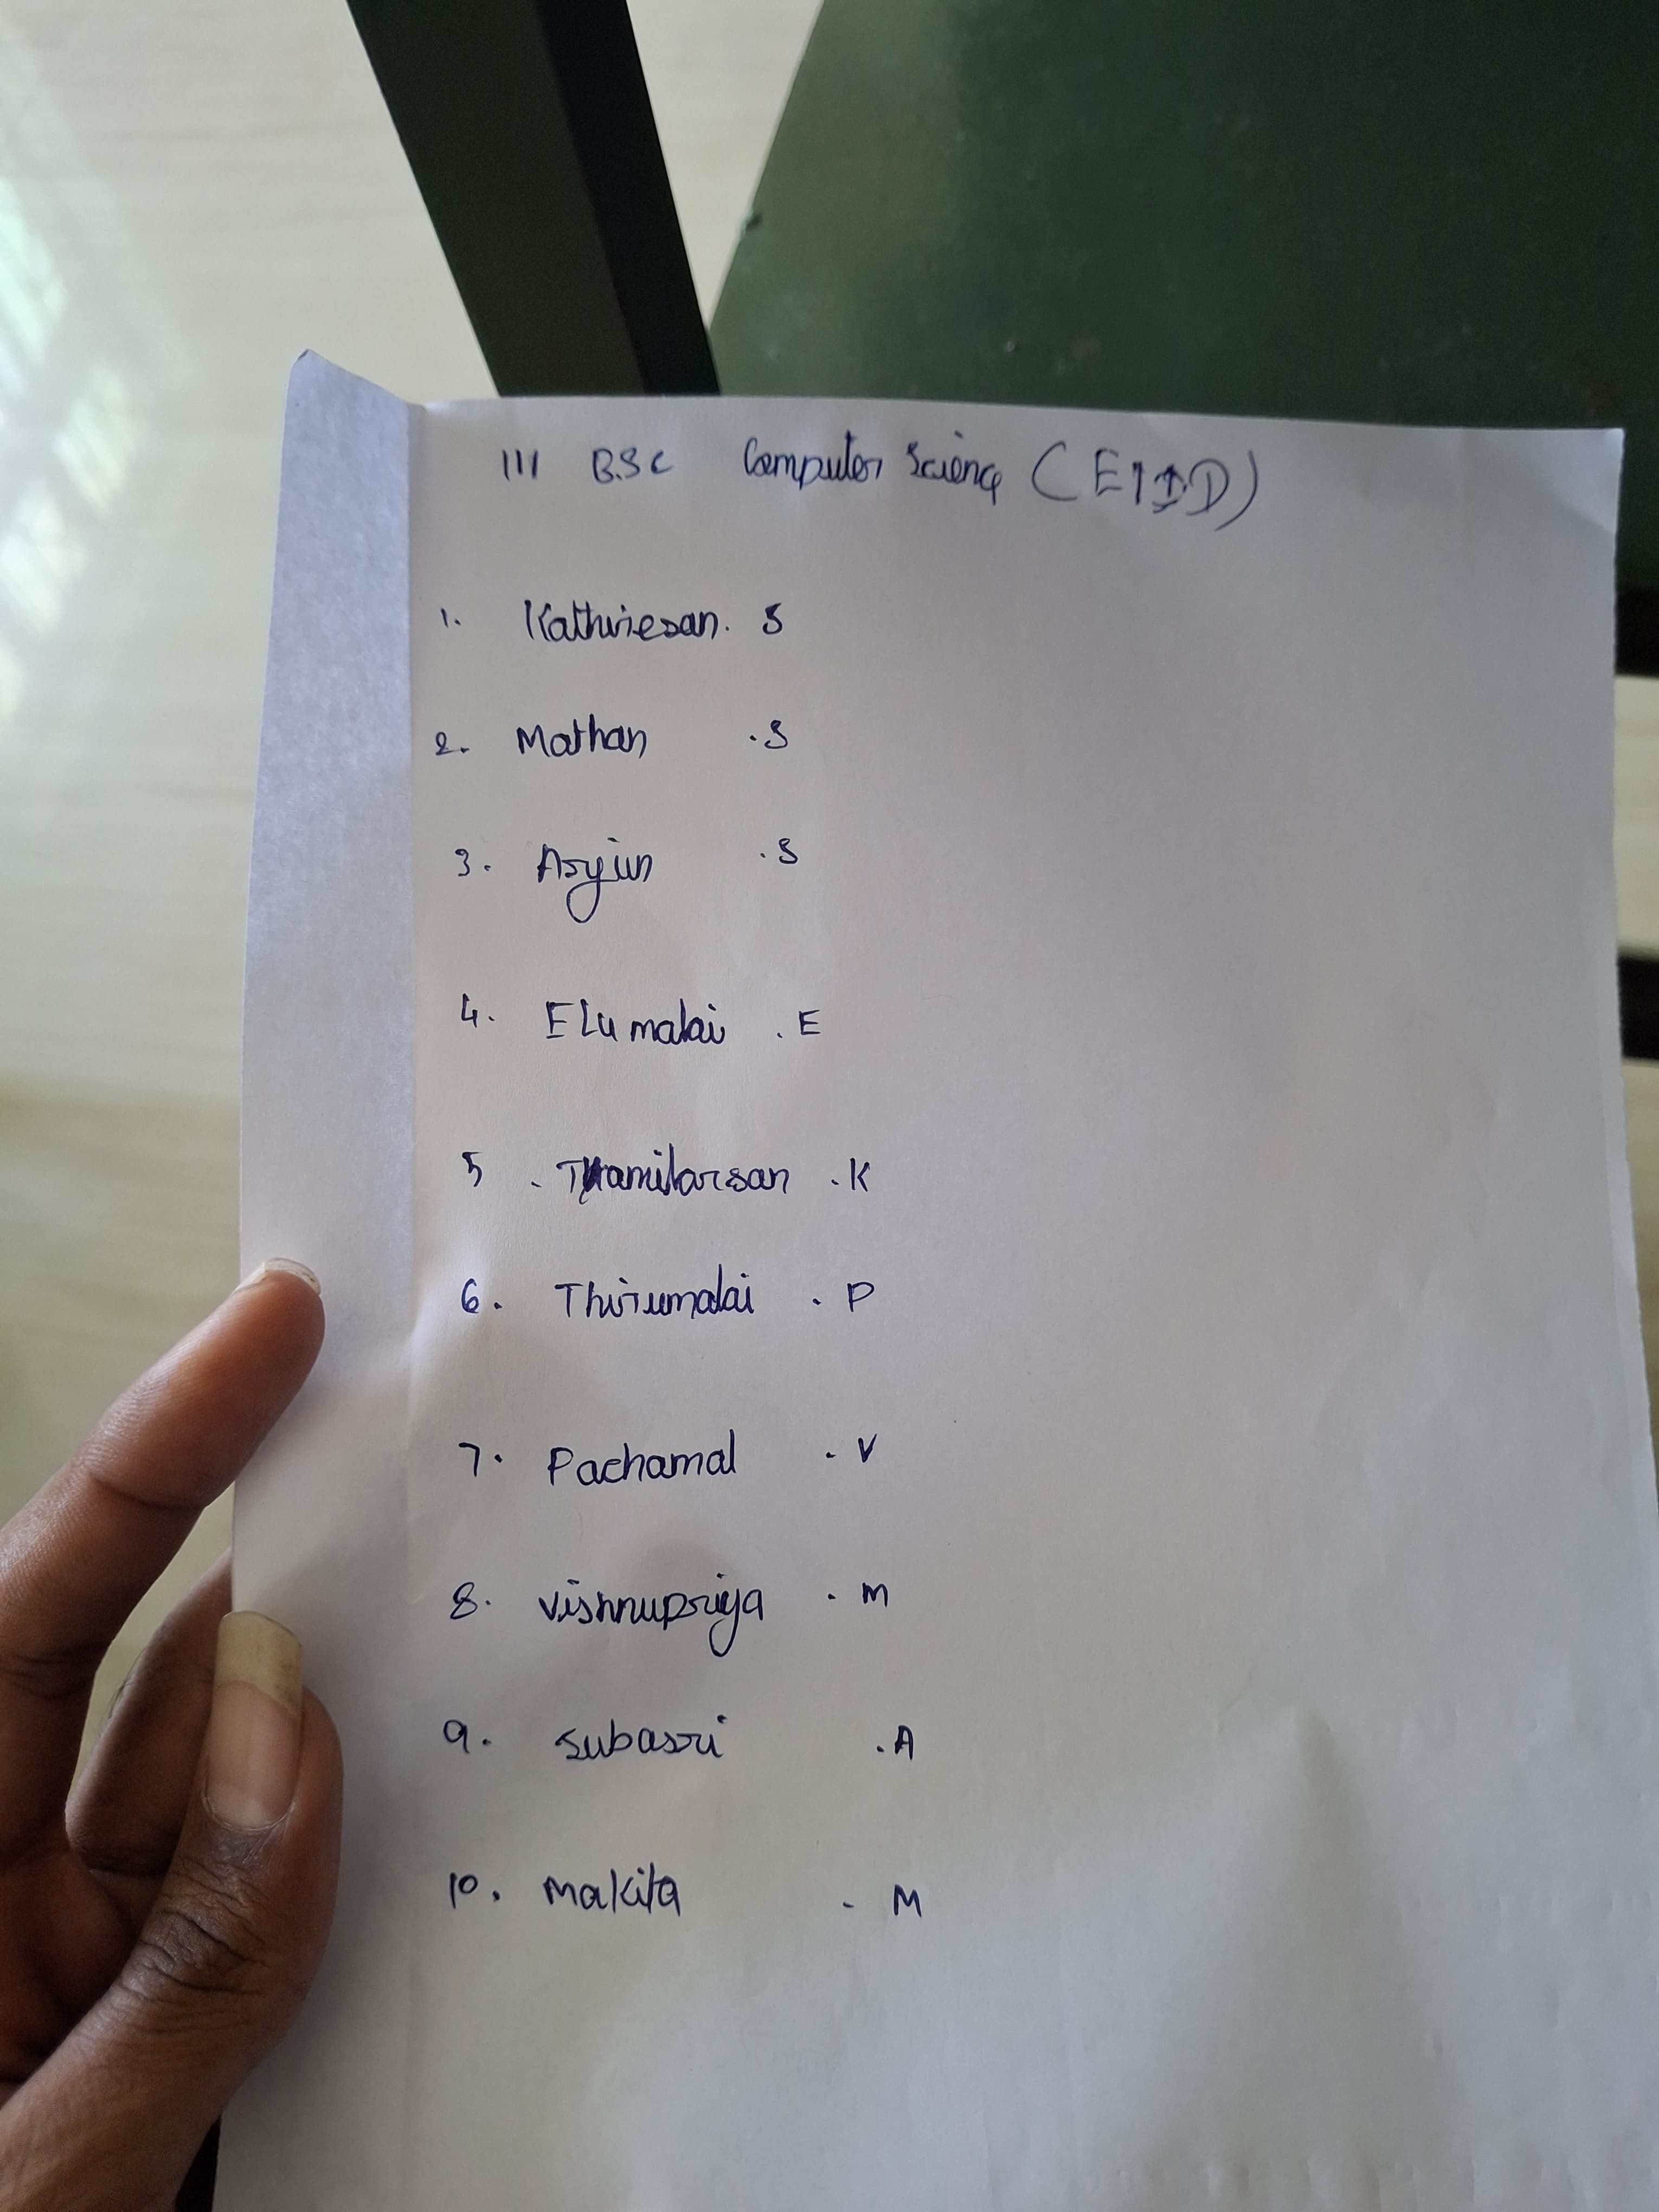 III B.SC Computer Science
1. Kathiriesan. S
2. Mathan . S
3. Arjun . S
4. Elumalai . E
5. Thamilarsan . K
6. Thirumalai . P
7. Pachamal . V
8. Vishnupriya . M
9. Subasri . A
10. Makita . M